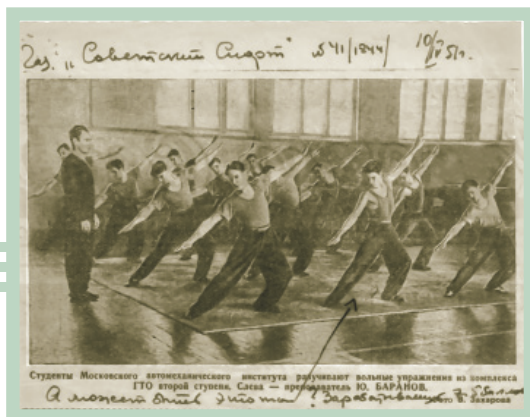 Газ. „Советский Спорт" №41/1844/ 10/IV 51г.
Студенты Московского автомеханического института разучивают вольные упражнения из комплекса
ГТО второй ступени. Слева — преподаватель Ю. БАРАНОВ.
Фото В. Захарова
А может быть это